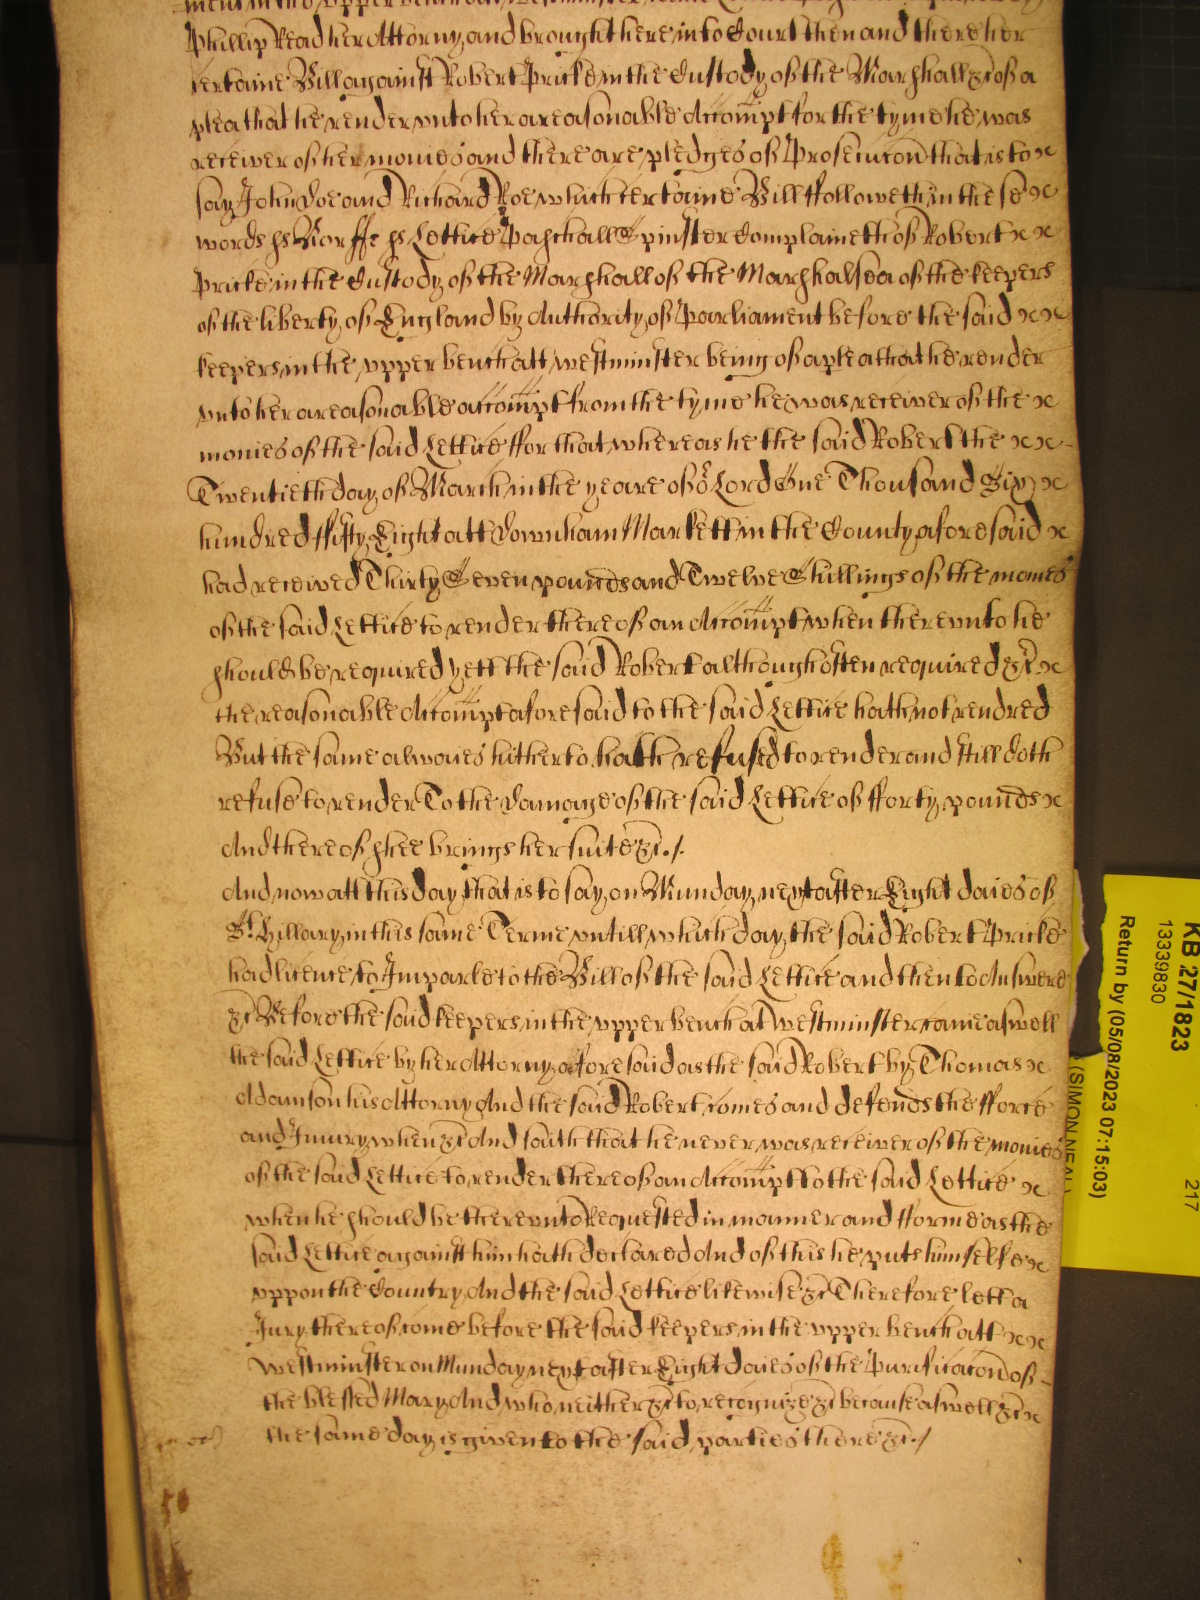 Phillip Read her Attorny, and brought here into Court then and there her
certaine Bill against Robert Pricke in the Custody of the Marshall &c of a
plea that he render unto her a reasonable Accompt for the tyme he was
receiver of her monies and there are pledges of Prosecucon that is to
say John Doe and Richard Roe which certaine Bill ffolloweth in these
words ss Norffe ss Lettice Paschall Spinster Complaineth of Robert
Pricke in the Custody of the Marshall of the Marshalsea of the keepers
of the liberty of England by Authority of Parliament before the said
keepers in the upper bench att Westminster being of a plea that he render
unto her a reasonable accompt from the tyme he was receiver of the
monies of the said Lettice ffor that whereas he the said Robert the
Twentieth day of March in the yeare of or Lord One Thousand Six
hundred ffifty Eight att Downham Markett in the County aforesaid
had received Thirty Seven pounds and Twelve Shillings of the monies
of the said Lettice to render thereof an Accompt when thereunto he
should be required yett the said Robert although often required &c
the reasonable Accompt aforesaid to the said Lettice hath not rendred
But the same alwaies hitherto hath refused to render and still doth
refuse to render To the damage of the said Lettice of fforty pounds
And thereof shee brings her suite &c ./.
And now att this day that is to say on Munday next after Eight daies of
St. Hillary in this same Terme untill which day the said Robert Pricke
had licence to Imparle to the Bill of the said Lettice and then to Answere
&c Before the said keepers in the upper bench at Westminster came aswell
the said Lettice by her Attorny aforesaid as the said Robert by Thomas
Adamson his Attorny And the said Robert comes and defends the fforce
and Injury when &c And saith that he never was receiver of the monies
of the said Lettice to render thereof an Accompt to the said Lettice
when he should be thereunto Requested in manner and fforme as the
said Lettice against him hath declared And of this he puts himselfe
uppon the Country And the said Lettice likewise &c Therefore lett a
Jury thereof come before the said keepers in the upper bench att
Westminster on Munday next after Eight daies of the Purificacon of
the blessed Mary And who neither &c to recognize &c because aswell &c
the same day is given to the said parties there &c ./
KB 27/1823
13339830
217
Return by (05/08/2023 07:15:03)
(SIMON NEAL)